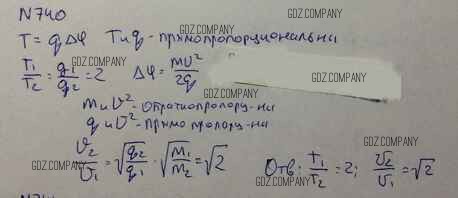 N740
GDZ.COMPANY GDZ.COMPANY
T = qΔφ T и q - прямопропорциональны
GDZ.COMPANY
T₁/T₂ = q₁/q₂ = 2 Δφ = mυ²/2q
GDZ.COMPANY
m и υ² - обратнопропорц-ны
q и υ² - прямо пропорц-ны
GDZ.COMPANY
υ₂/υ₁ = √(q₂/q₁) · √(m₁/m₂) = √2 Отв: T₁/T₂ = 2; υ₂/υ₁ = √2
GDZ.COMPANY GDZ.COMPANY